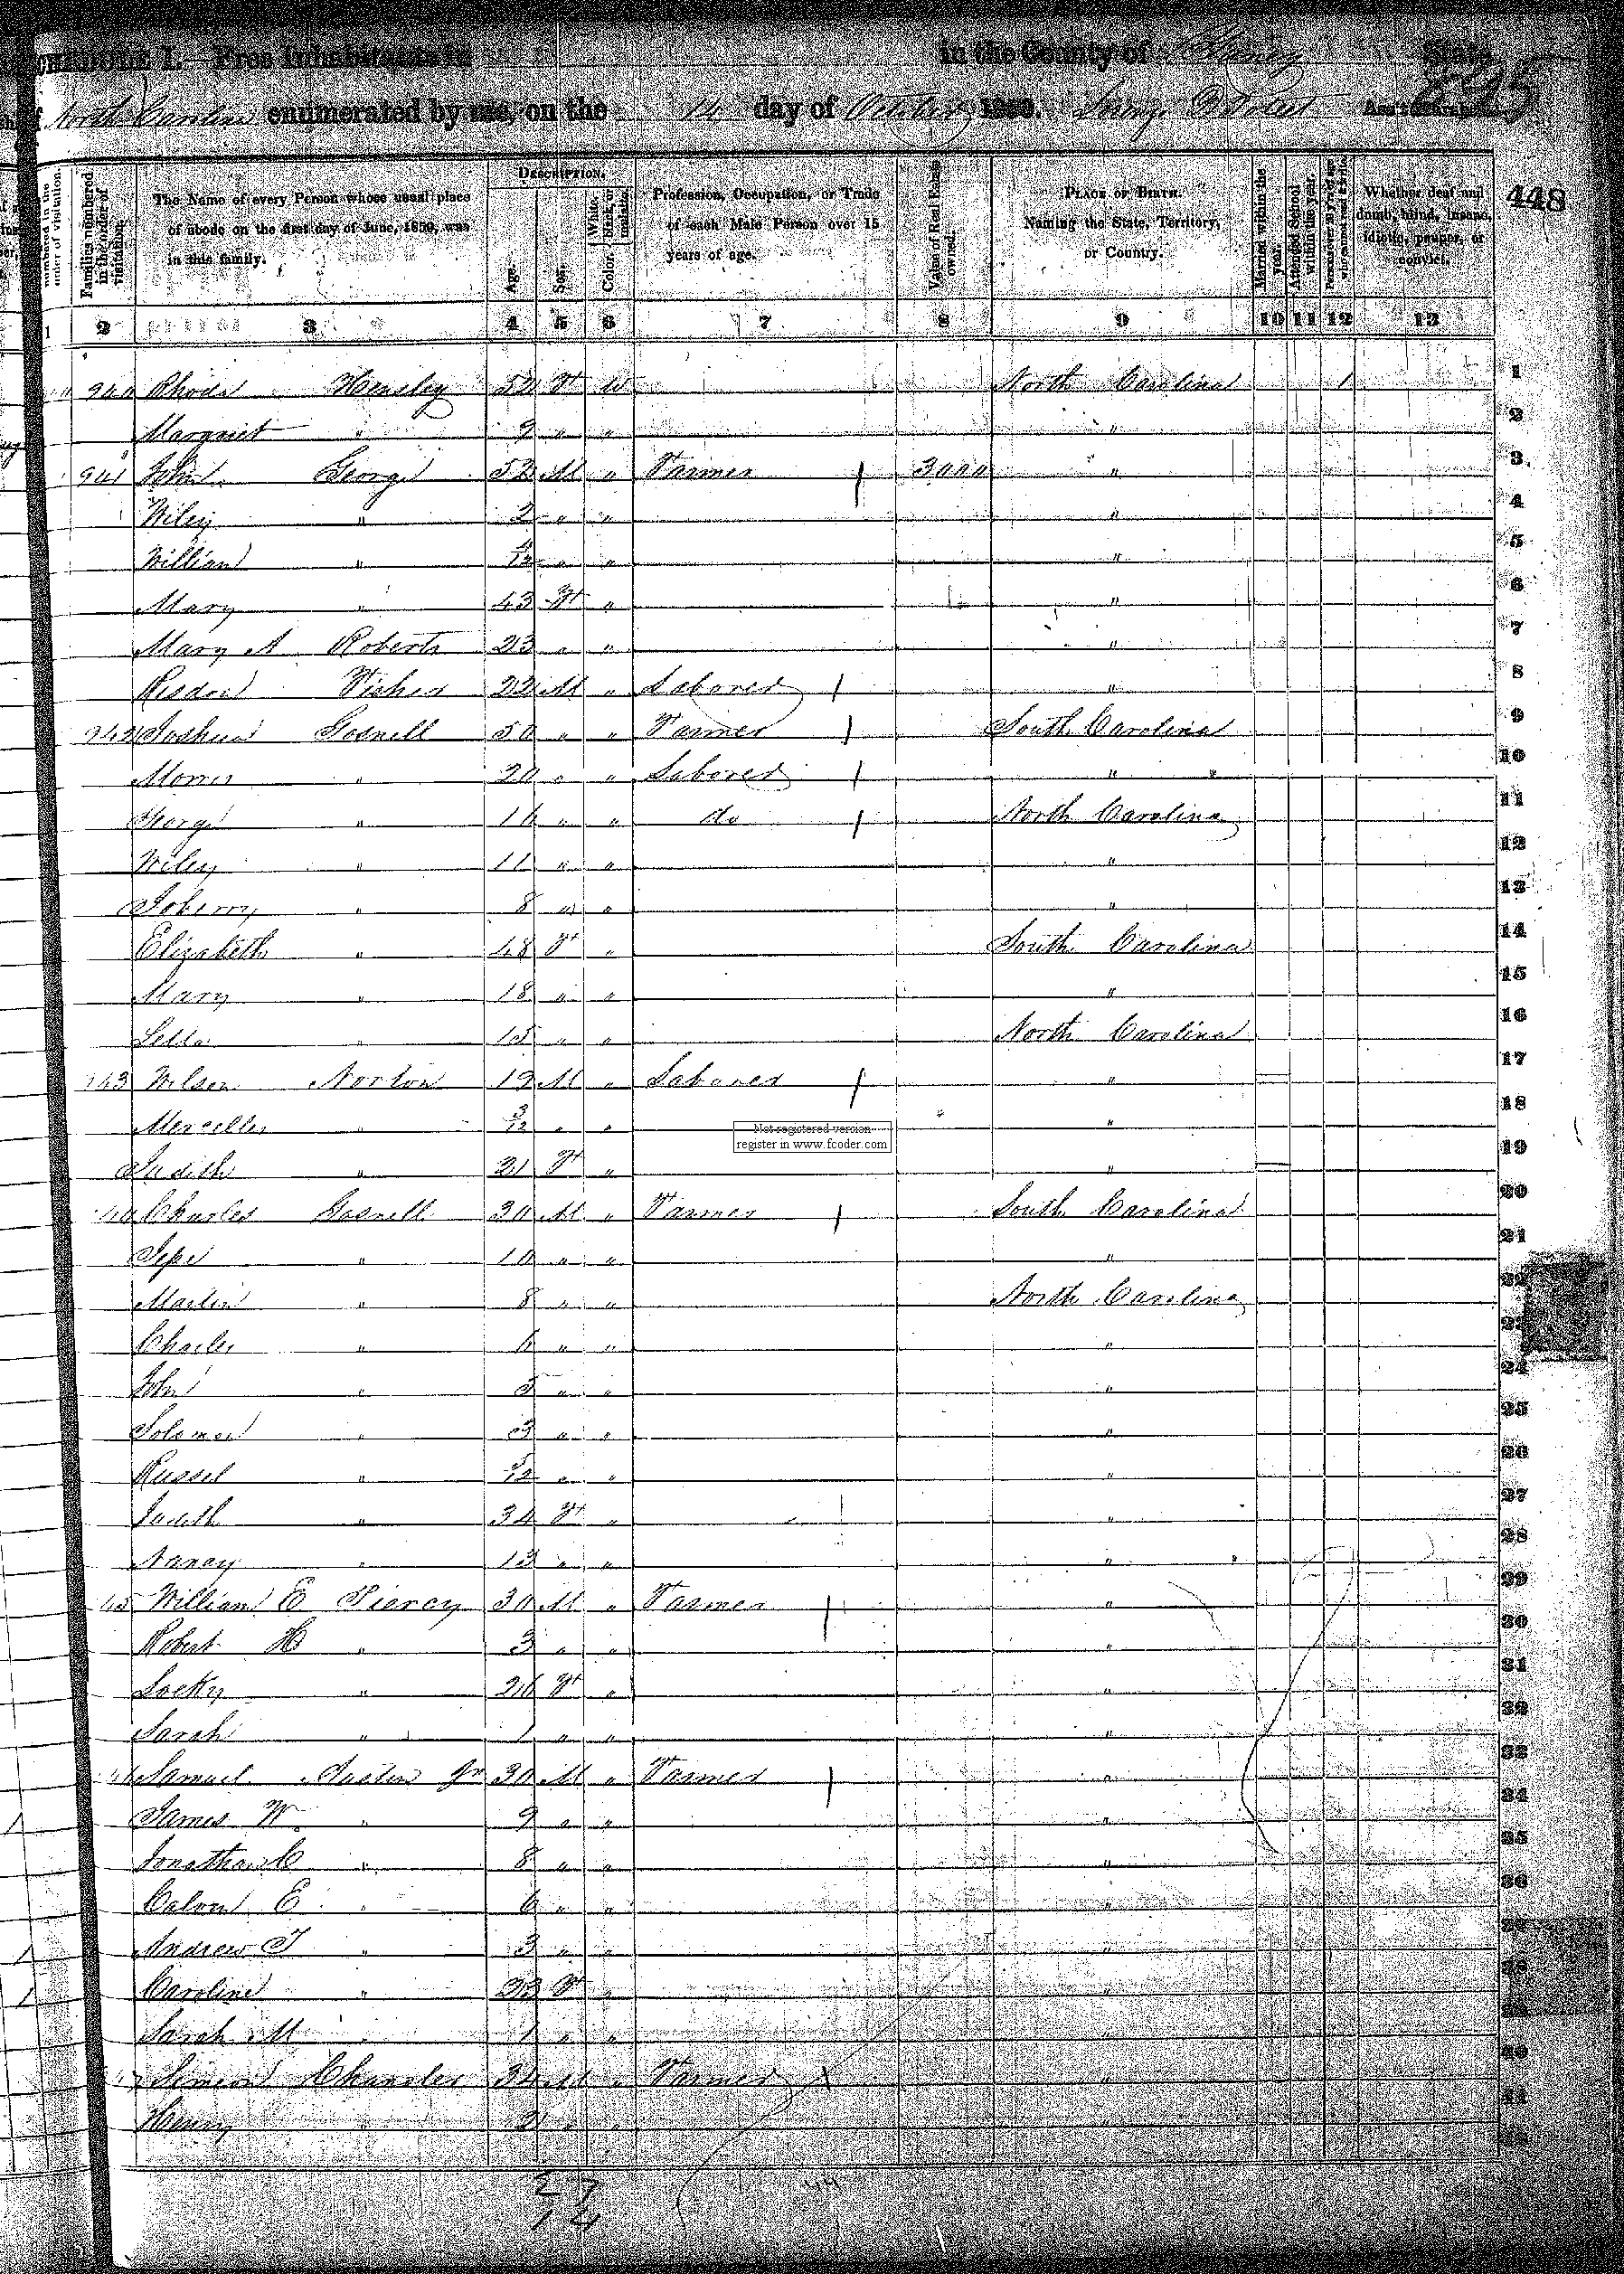 SCHEDULE I.—Free Inhabitants in in the County of Yancey State
of North Carolina enumerated by me, on the 14 day of October 1850. Ass't Marshal
448
numbered in the order of visitation.
Families numbered in the order of visitation.
The Name of every Person whose usual place of abode on the first day of June, 1850, was in this family.
DESCRIPTION.
Age.
Sex.
Color. White, black, or mulatto.
Profession, Occupation, or Trade of each Male Person over 15 years of age.
Value of Real Estate owned.
PLACE OF BIRTH. Naming the State, Territory, or Country.
Married within the year.
Attended School within the year.
Persons over 20 y'rs of age who cannot read & write.
Whether deaf and dumb, blind, insane, idiotic, pauper, or convict.
1 2 3 4 5 6 7 8 9 10 11 12 13
940 Rhoda Hensley 52 F W North Carolina 1 1
Margaret " 9 " " " 2
941 John George 52 M " Farmer 3000 " 3
Wiley " 2 " " " 4
William " /12 " " " 5
Mary " 43 F " " 6
Mary A Roberts 23 " " " 7
Risdon Fisher 22 M " Laborer " 8
942 Joshua Gosnell 50 " " Farmer South Carolina 9
Morris " 20 " " Laborer " " 10
George " 16 " " do North Carolina 11
Wiley " 11 " " " 12
Joberry " 8 " " " 13
Elizabeth " 48 F " South Carolina 14
Mary " 18 " " " 15
" 15 " " North Carolina 16
943 Wilson Norton 19 M " Laborer " 17
Mercellus " 3/12 " " " 18
Not registered version
register in www.fcoder.com
Judith " 21 F " " 19
Charles Gosnell 30 M " Farmer South Carolina 20
" 10 " " " 21
Martin " 8 " " North Carolina 22
Charles " 6 " " " 23
John " 5 " " " 24
Solomon " 3 " " " 25
Russel " 5/12 " " " 26
Judith " 34 F " " 27
Nancy " 13 " " " 28
45 William E Piercy 30 M " Farmer " 29
Robert H " 3 " " " 30
Locky " 26 F " " 31
Sarah " 1 " " " 32
Samuel Jr 30 M " Farmer " 33
James W. " 9 " " " 34
Jonathan C " 8 " " " 35
Calvin E " 6 " " " 36
Andrew J " 3 " " "
Caroline " 33 F " "
Sarah M " 1 " " "
Simeon Chandler 34 M " Farmer "
Henry " 2 " "
27
14